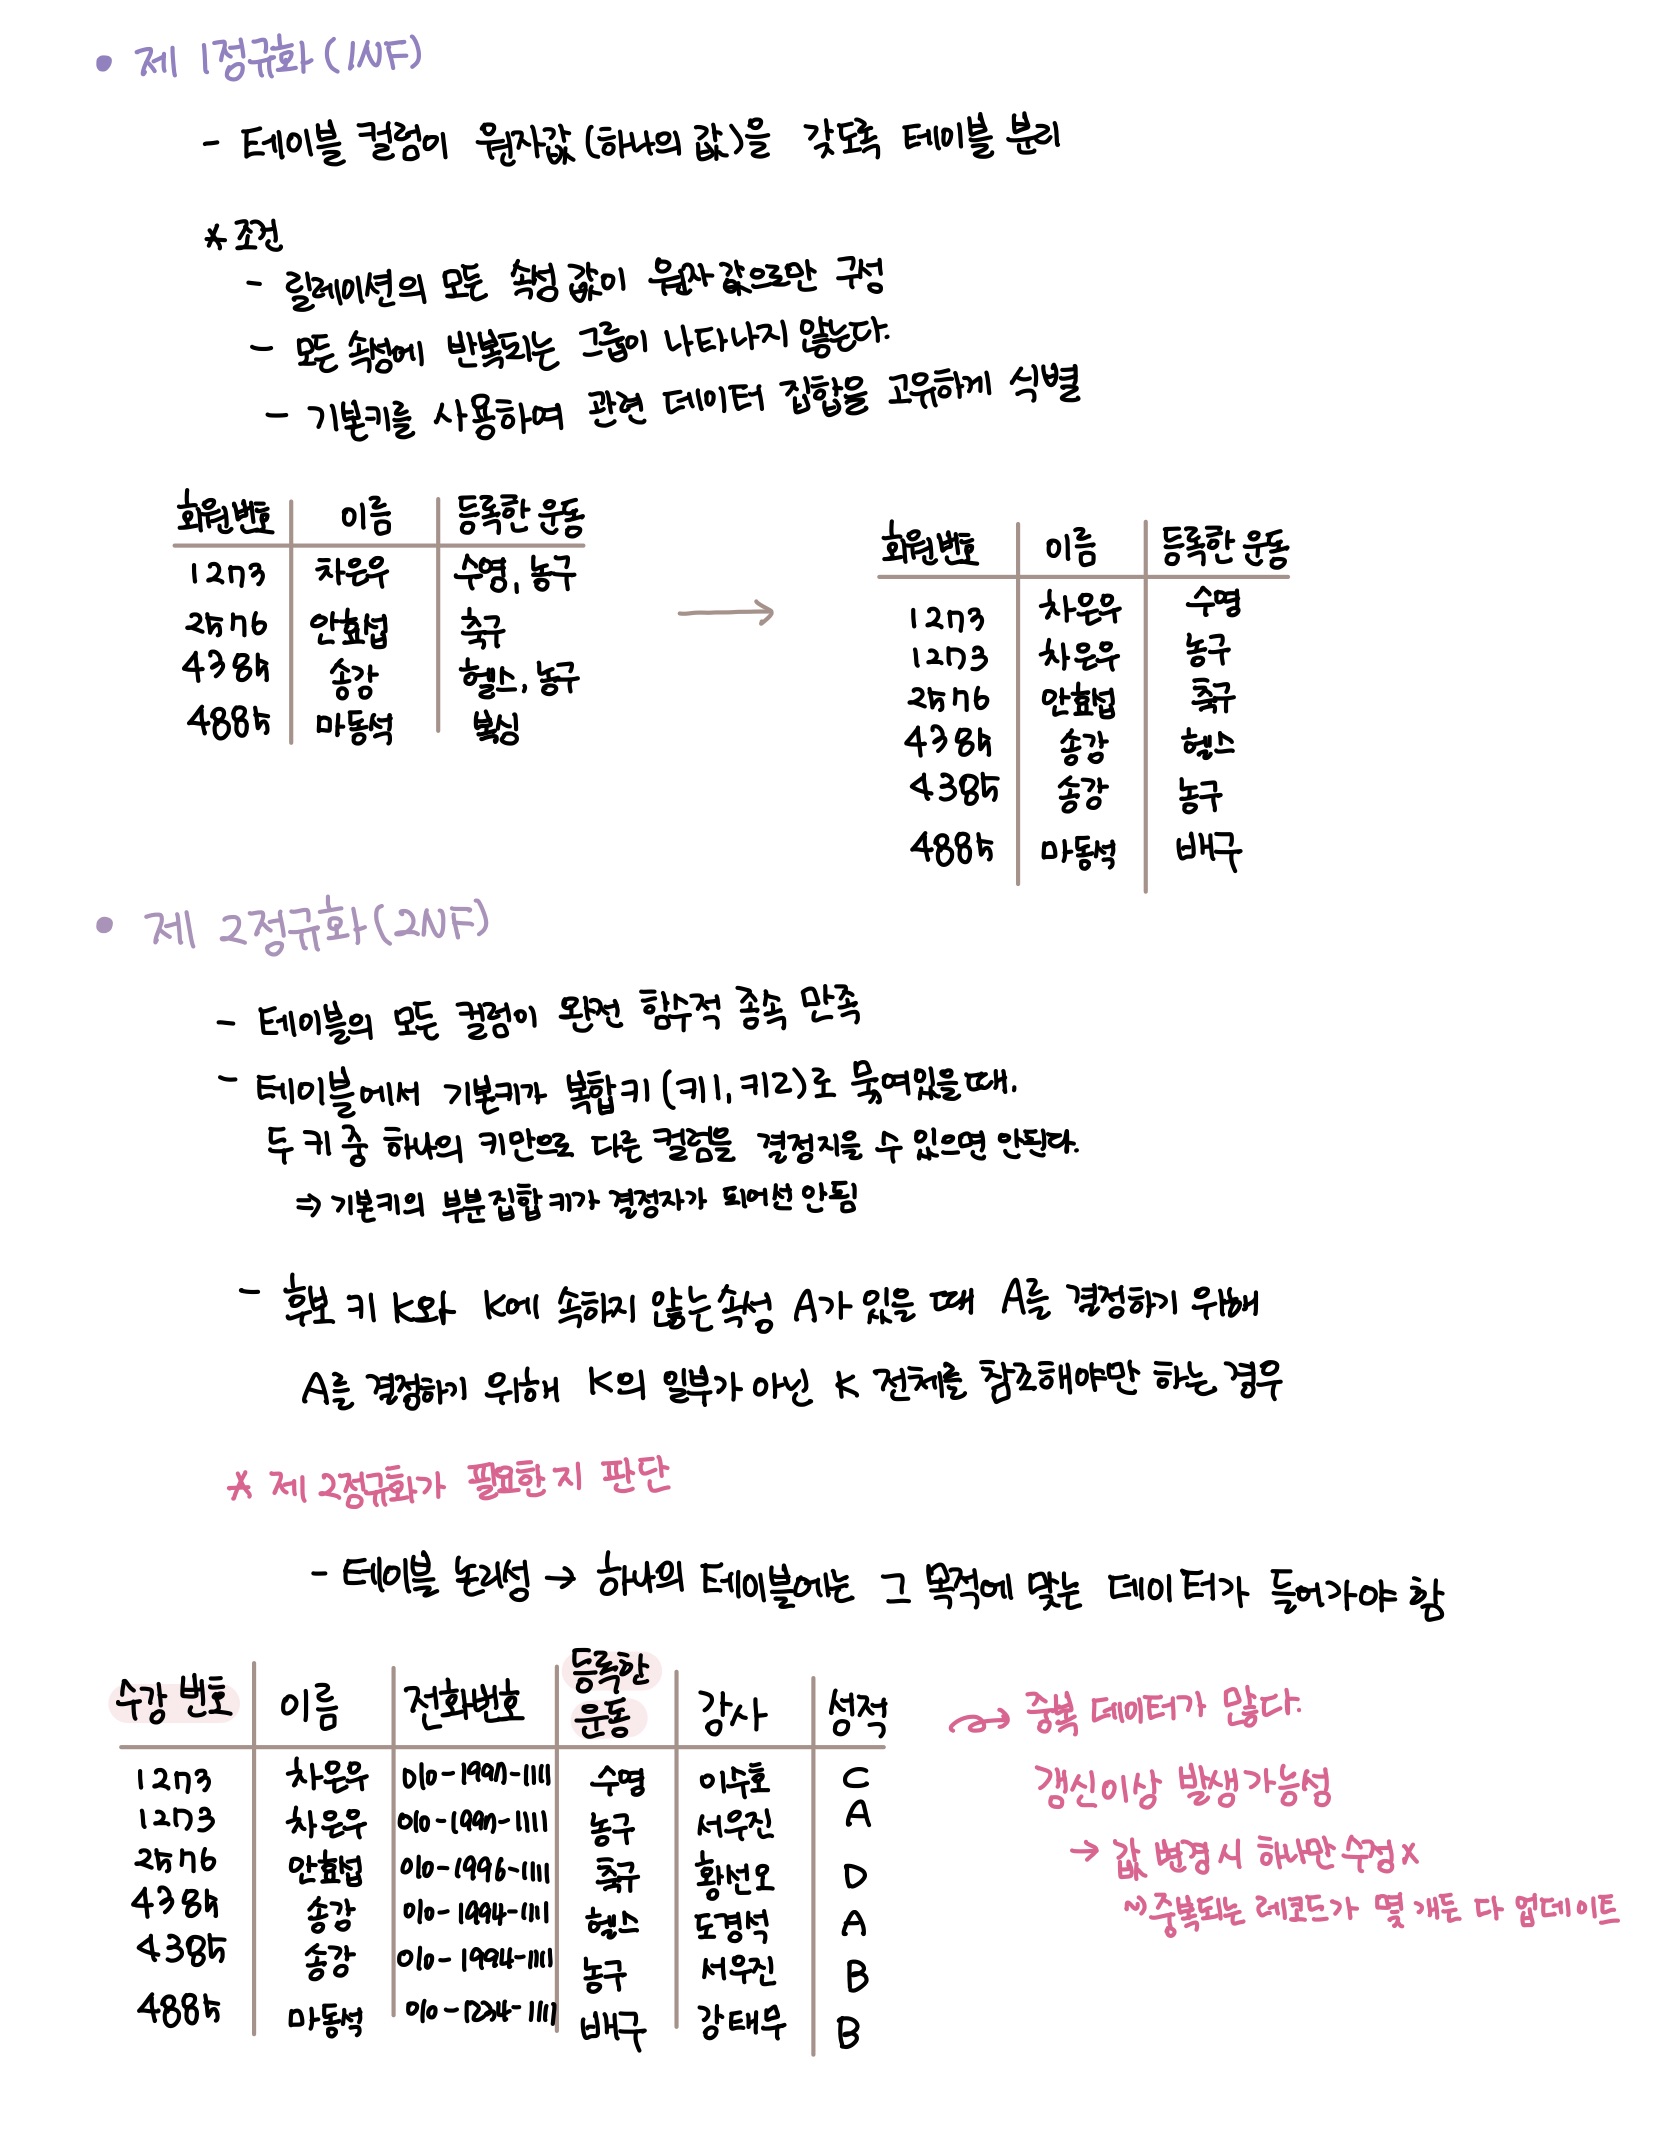 • 제 1정규화(1NF)
- 테이블 컬럼이 원자값(하나의 값)을 갖도록 테이블 분리
* 조건
- 릴레이션의 모든 속성 값이 원자 값으로만 구성
- 모든 속성에 반복되는 그룹이 나타나지 않는다.
- 기본키를 사용하여 관련 데이터 집합을 고유하게 식별
회원번호 이름 등록한 운동
1273 차은우 수영, 농구
2576 안효섭 축구
4385 송강 헬스, 농구
4885 마동석 복싱
→
회원번호 이름 등록한 운동
1273 차은우 수영
1273 차은우 농구
2576 안효섭 축구
4385 송강 헬스
4385 송강 농구
4885 마동석 배구
• 제 2정규화(2NF)
- 테이블의 모든 컬럼이 완전 함수적 종속 만족
- 테이블에서 기본키가 복합키(키1, 키2)로 묶여있을때,
두 키 중 하나의 키만으로 다른 컬럼을 결정지을 수 있으면 안된다.
⇒ 기본키의 부분집합 키가 결정자가 되어선 안됨
- 후보 키 K와 K에 속하지 않는 속성 A가 있을 때 A를 결정하기 위해
A를 결정하기 위해 K의 일부가 아닌 K 전체를 참조해야만 하는 경우
* 제 2정규화가 필요한지 판단
- 테이블 논리성 → 하나의 테이블에는 그 목적에 맞는 데이터가 들어가야 함
수강 번호 이름 전화번호 등록한 운동 강사 성적
1273 차은우 010-1997-1111 수영 이수호 C
1273 차은우 010-1997-1111 농구 서우진 A
2576 안효섭 010-1996-1111 축구 황선오 D
4385 송강 010-1994-1111 헬스 도경석 A
4385 송강 010-1994-1111 농구 서우진 B
4885 마동석 010-1234-1111 배구 강태무 B
→ 중복 데이터가 많다.
갱신이상 발생가능성
→ 값 변경시 하나만 수정 x
~> 중복되는 레코드가 몇 개든 다 업데이트